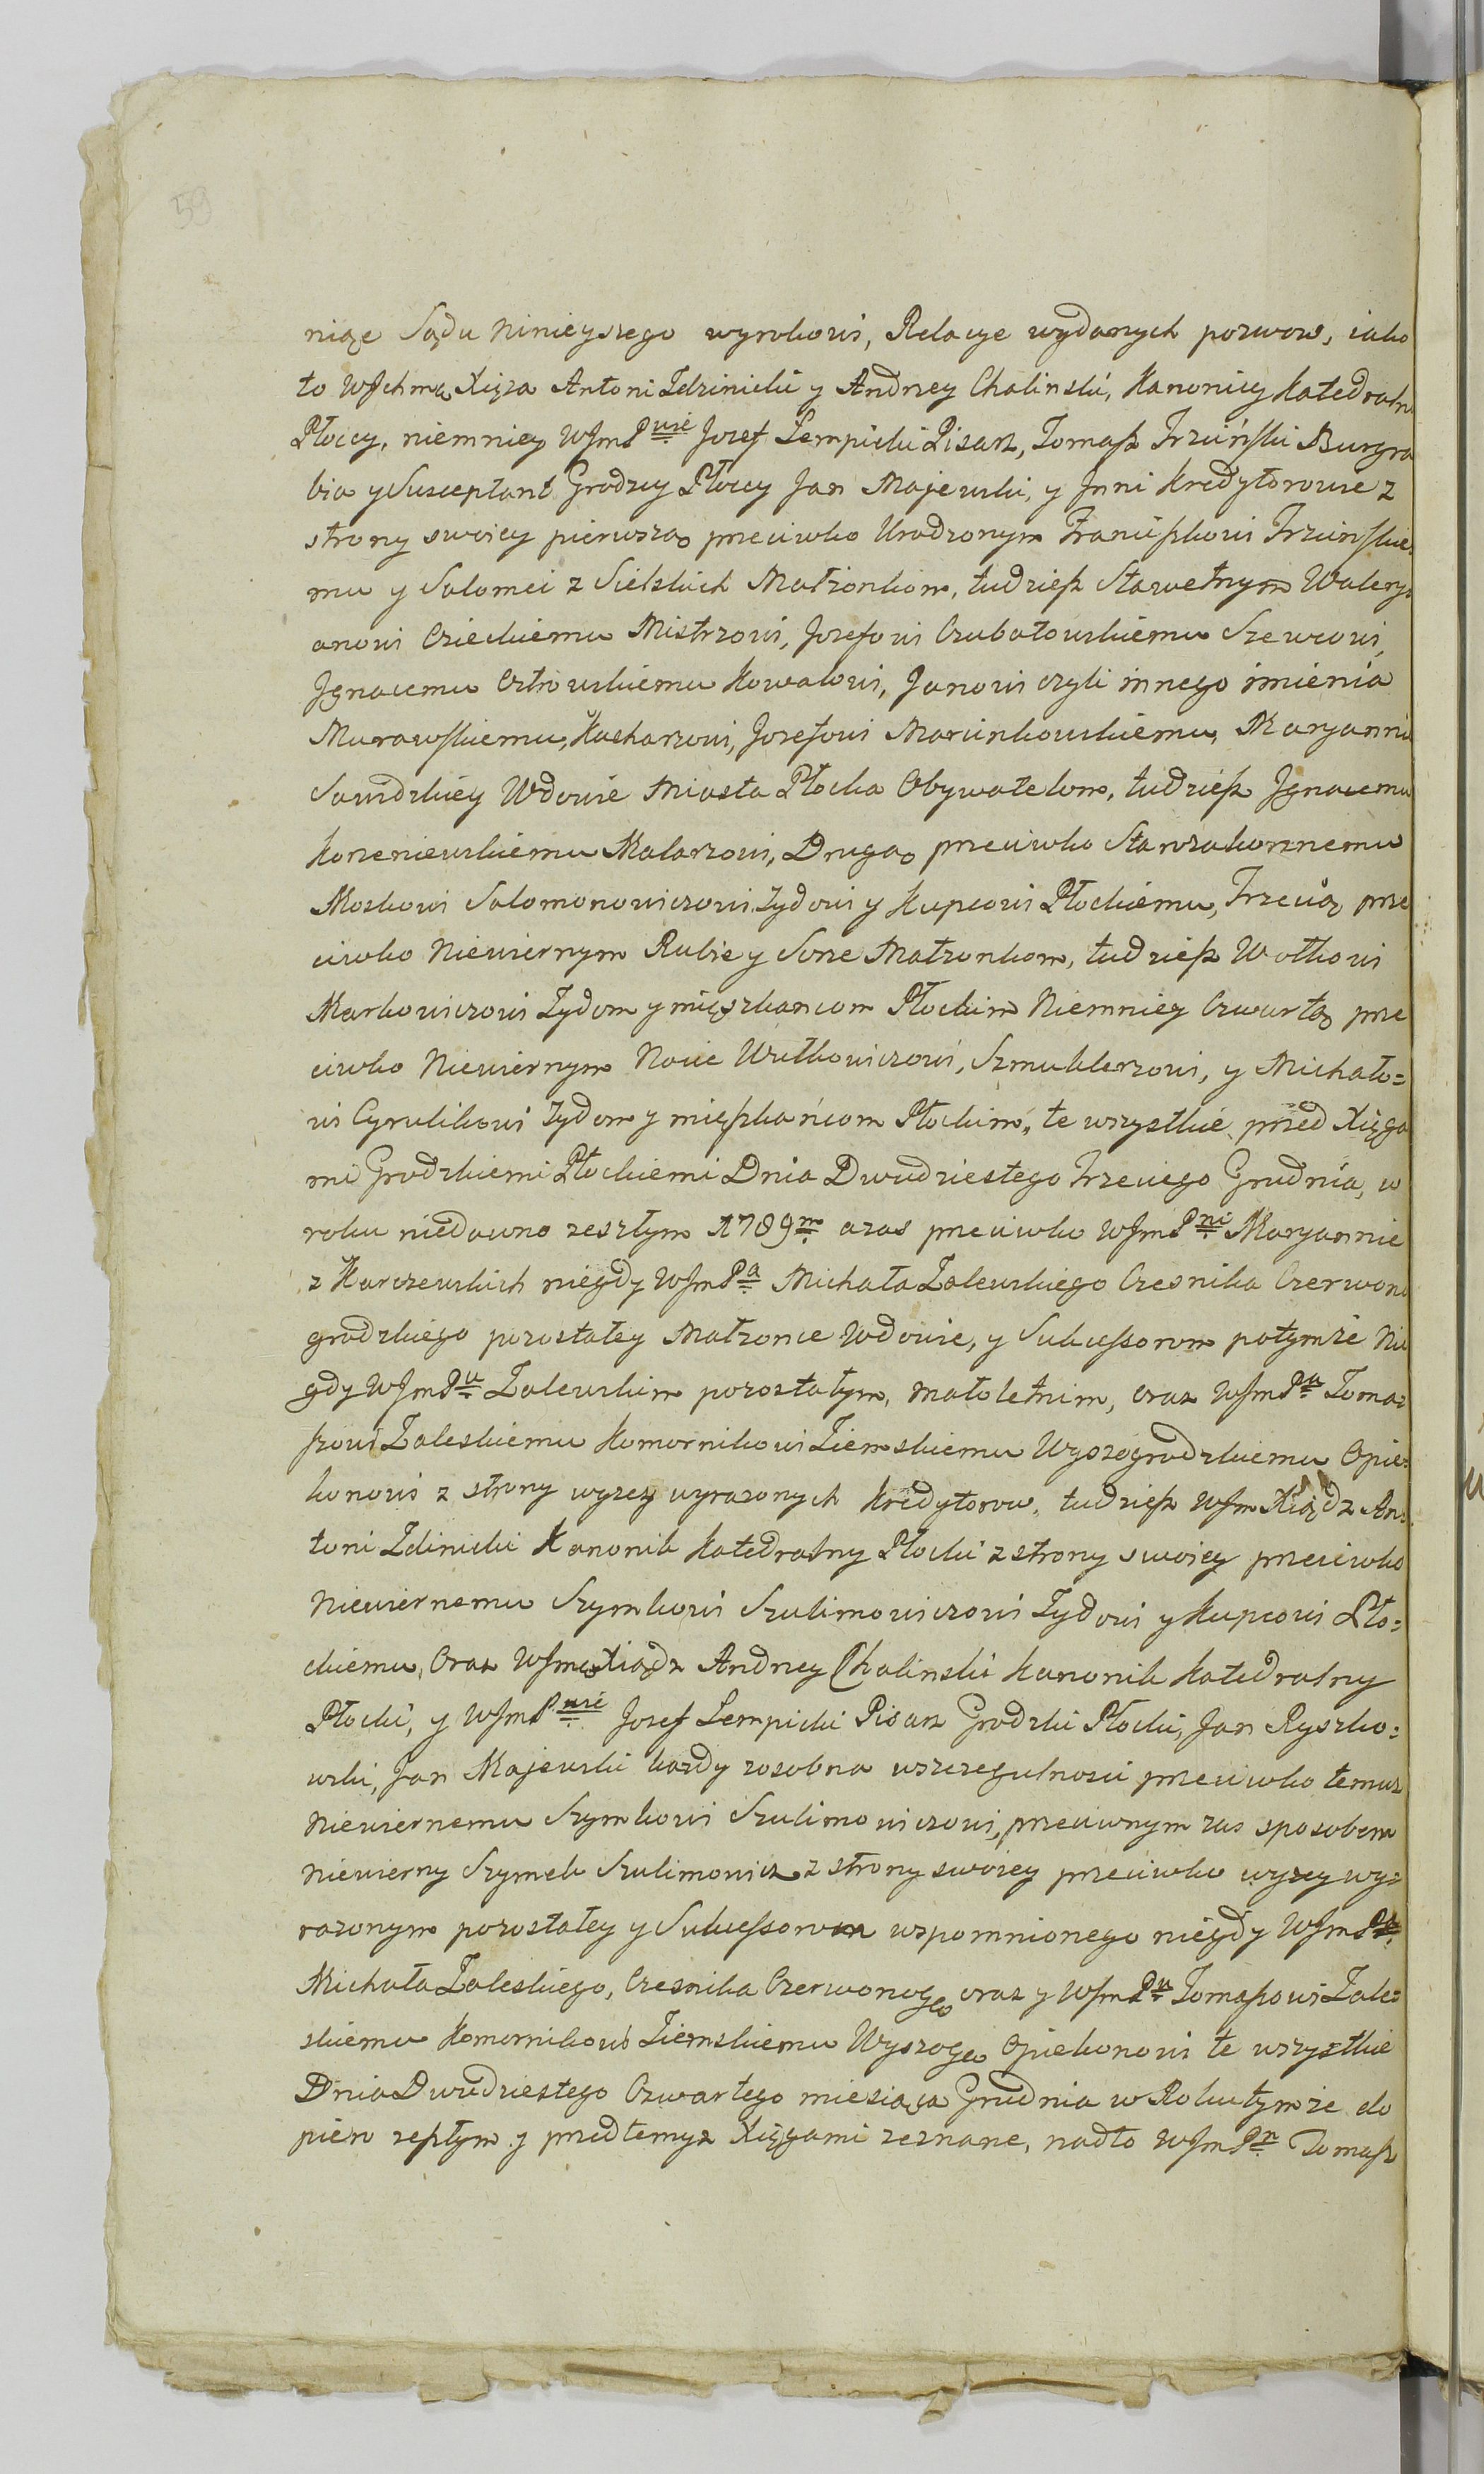 59
niąc Sądu Ninieyszego wyrokowi, Relacye wydanych pozwow, iako
to WJchmć Xięża Antoni Zdzinicki y Andrzey Chalinski, Kanonicy Katedralni
Płoccy, niemniey WJmPwie Jozef Lempicki Pisarz, Tomasz Trzciński Burgra
bia y Susceptant Grodzcy Płoccy Jan Majewski, y Jnni Kredytorowie z
strony swoiey pierwszą przeciwko Urodzonym Franciszkowi Trzcinskie=
mu y Salomei z Sielskich Małżonkom, tudzież Sławetnym Walery=
anowi Czieckiemu Mistrzowi, Jozefowi Czubatowskiemu Szewcowi,
Jgnacemu Ostrowskiemu Kowalowi, Janowi czyli innego imienia
Murawskiemu, Kucharzowi, Jozefowi Marcinkowskiemu, Maryannie
Sawidzkiey Wdowie Miasta Płocka Obywatelom, tudzież Jgnacemu
Korzeniewskiemu Malarzowi, Drugą przeciwko Starozakonnemu
Moszkowi Salomonowiczowi Zydowi y Kupcowi Płockiemu, Trzecią prze
ciwko Niewiernym Rubie y Sorze Małżonkom, tudzież Wolkowi
Markowiczowi Zydom y mięszkancom Płockim Niemniey Czwartą prze
ciwko Niewiernym Noie Wulkowiczowi, Szmuklerzowi, y Michało=
wi Cyrulikowi Zydom y mięszkańcom Płockim, te wszystkie przed Xięga
mi Grodzkiemi Płockiemi Dnia Dwudziestego Trzeciego Grudnia, w
roku niedawno zeszłym 1789m azas przeciwko WJmPni Maryannie
z Karczewskich niegdy WJmPa Michała Zalewskiego Czesnika Czerwono
grodzkiego pozostałey Małżonce Wdowie, y Sukcessorom potymże Nie
gdy WJmPu Zalewskim pozostałym, małoletnim, oraz WJmPu Toma=
szowi Zaleskiemu Komornikowi Ziemskiemu Wyszogrodzkiemu Opie=
konowi z strony wyzey wyrazonych Kredytorow, tudzież WJm Xiądz An=
toni Zdinicki Kanonik Katedralny Płocki z strony swoiey przeciwko
Niewiernemu Szymkowi Szulimowiczowi Zydowi y Kupcowi Pło=
ckiemu, Oraz WJmć Xiądz Andrzey Chalinski Kanonik Katedralny
Płocki, y WJmPwie Jozef Lempicki Pisarz Grodzki Płocki, Jan Ryszko=
wski, Jan Majewski każdy zosobna wszczegulnosci przeciwko temuz
Niewiernemu Szymkowi Szulimowiczowi, przeciwnym zas sposobem
Niewierny Szymek Szulimowicz z strony swoiey przeciwko wyzey wy=
razonym pozostałey y Sukcessorom wspomnionego niegdy WJmPa
Michała Zaleskiego, Czesnika Czerwonogo oraz y WJmPu Tomaszowi Zale=
skiemu Komornikowi Ziemskiemu Wyszogo Opiekonowi te wszystkie
Dnia Dwudziestego Czwartego miesiąca Grudnia w Roku tymże do
piero zeszłym y przed temyz Xięgami zeznane, nadto WJmPn Tomasz